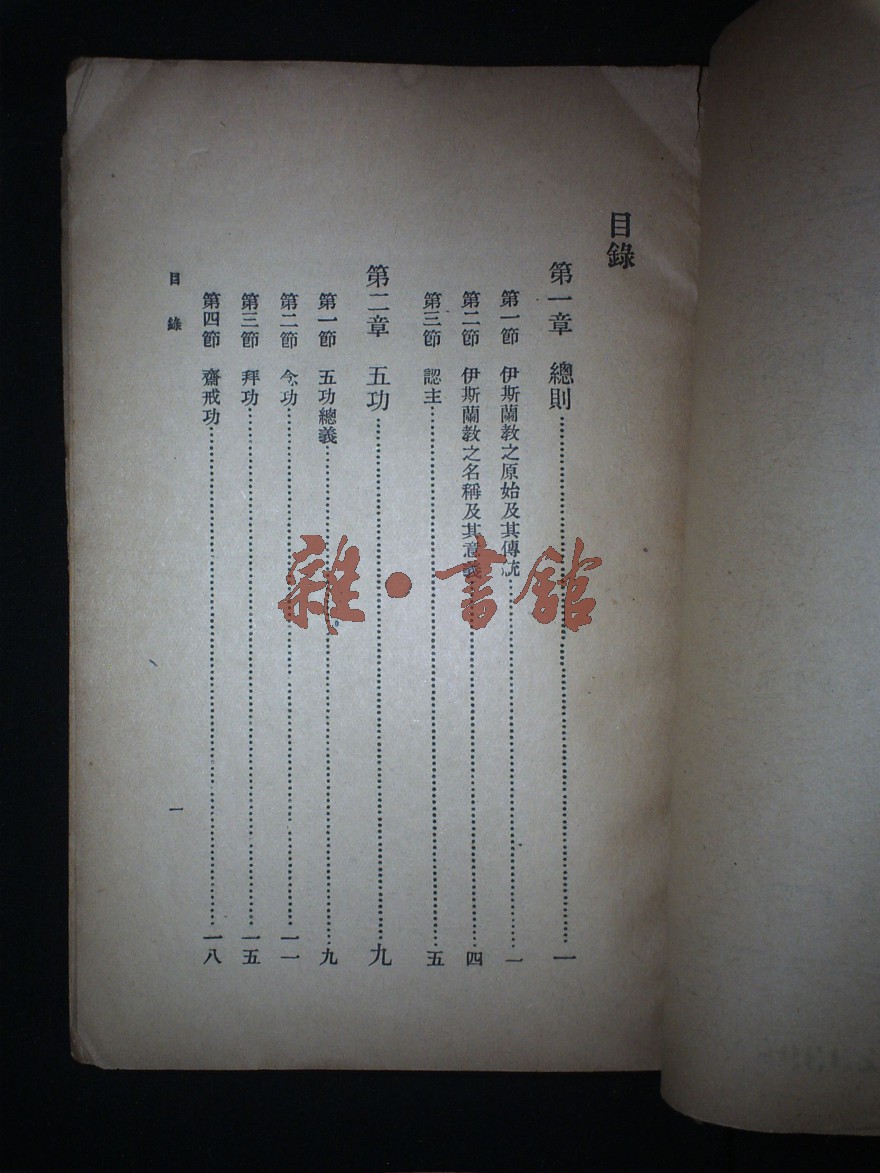 目錄
第一章 總則……一
第一節 伊斯蘭教之原始及其傳統……一
第二節 伊斯蘭教之名稱及其意義……四
第三節 認主……五
第二章 五功……九
第一節 五功總義……九
第二節 念功……一一
第三節 拜功……一五
第四節 齋戒功……一八
目錄 一
雜·書館